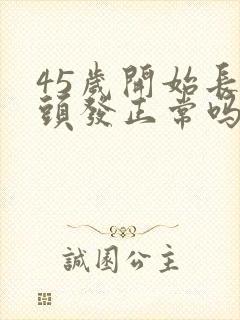 45歲開始長
頭發正常嗎
誠園公主